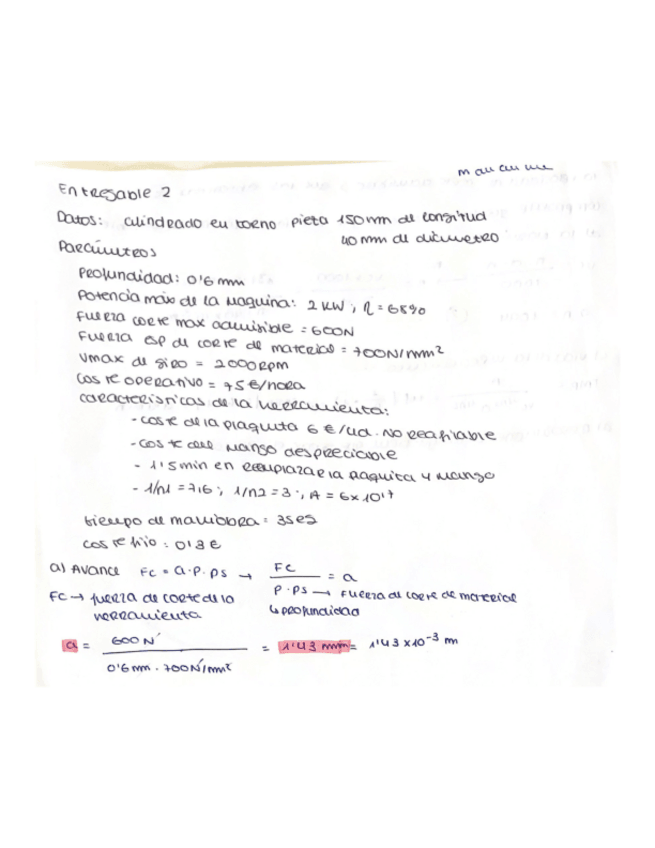 Entregable 2
Datos: cilindrado en torno pieza 150mm de longitud
40 mm de diámetro
Parámetros
Profundidad: 0'6 mm
Potencia máx de la maquina: 2 KW; η = 68%
Fuerza corte max admisible = 600N
Fuerza esp de corte de material = 700N/mm²
Vmax de giro = 2000rpm
Coste operativo = 75 €/hora
Características de la herramienta:
- coste de la plaquita 6 €/ud. No reafilable
- coste del mango despreciable
- 1'5 min en remplazar la plaquita y mango
- 1/n1 = 7'6; 1/n2 = 3; A = 6x10¹⁷
tiempo de maniobra = 35es
coste fijo: 0'3 €
a) Avance Fc = a·p·ps → Fc / p·ps = a
ps → fuerza de corte de material
↳ profundidad
Fc → fuerza de corte de la herramienta
a = 600N / 0'6mm · 700N/mm² = 1'43 mm = 1'43 x10⁻³ m